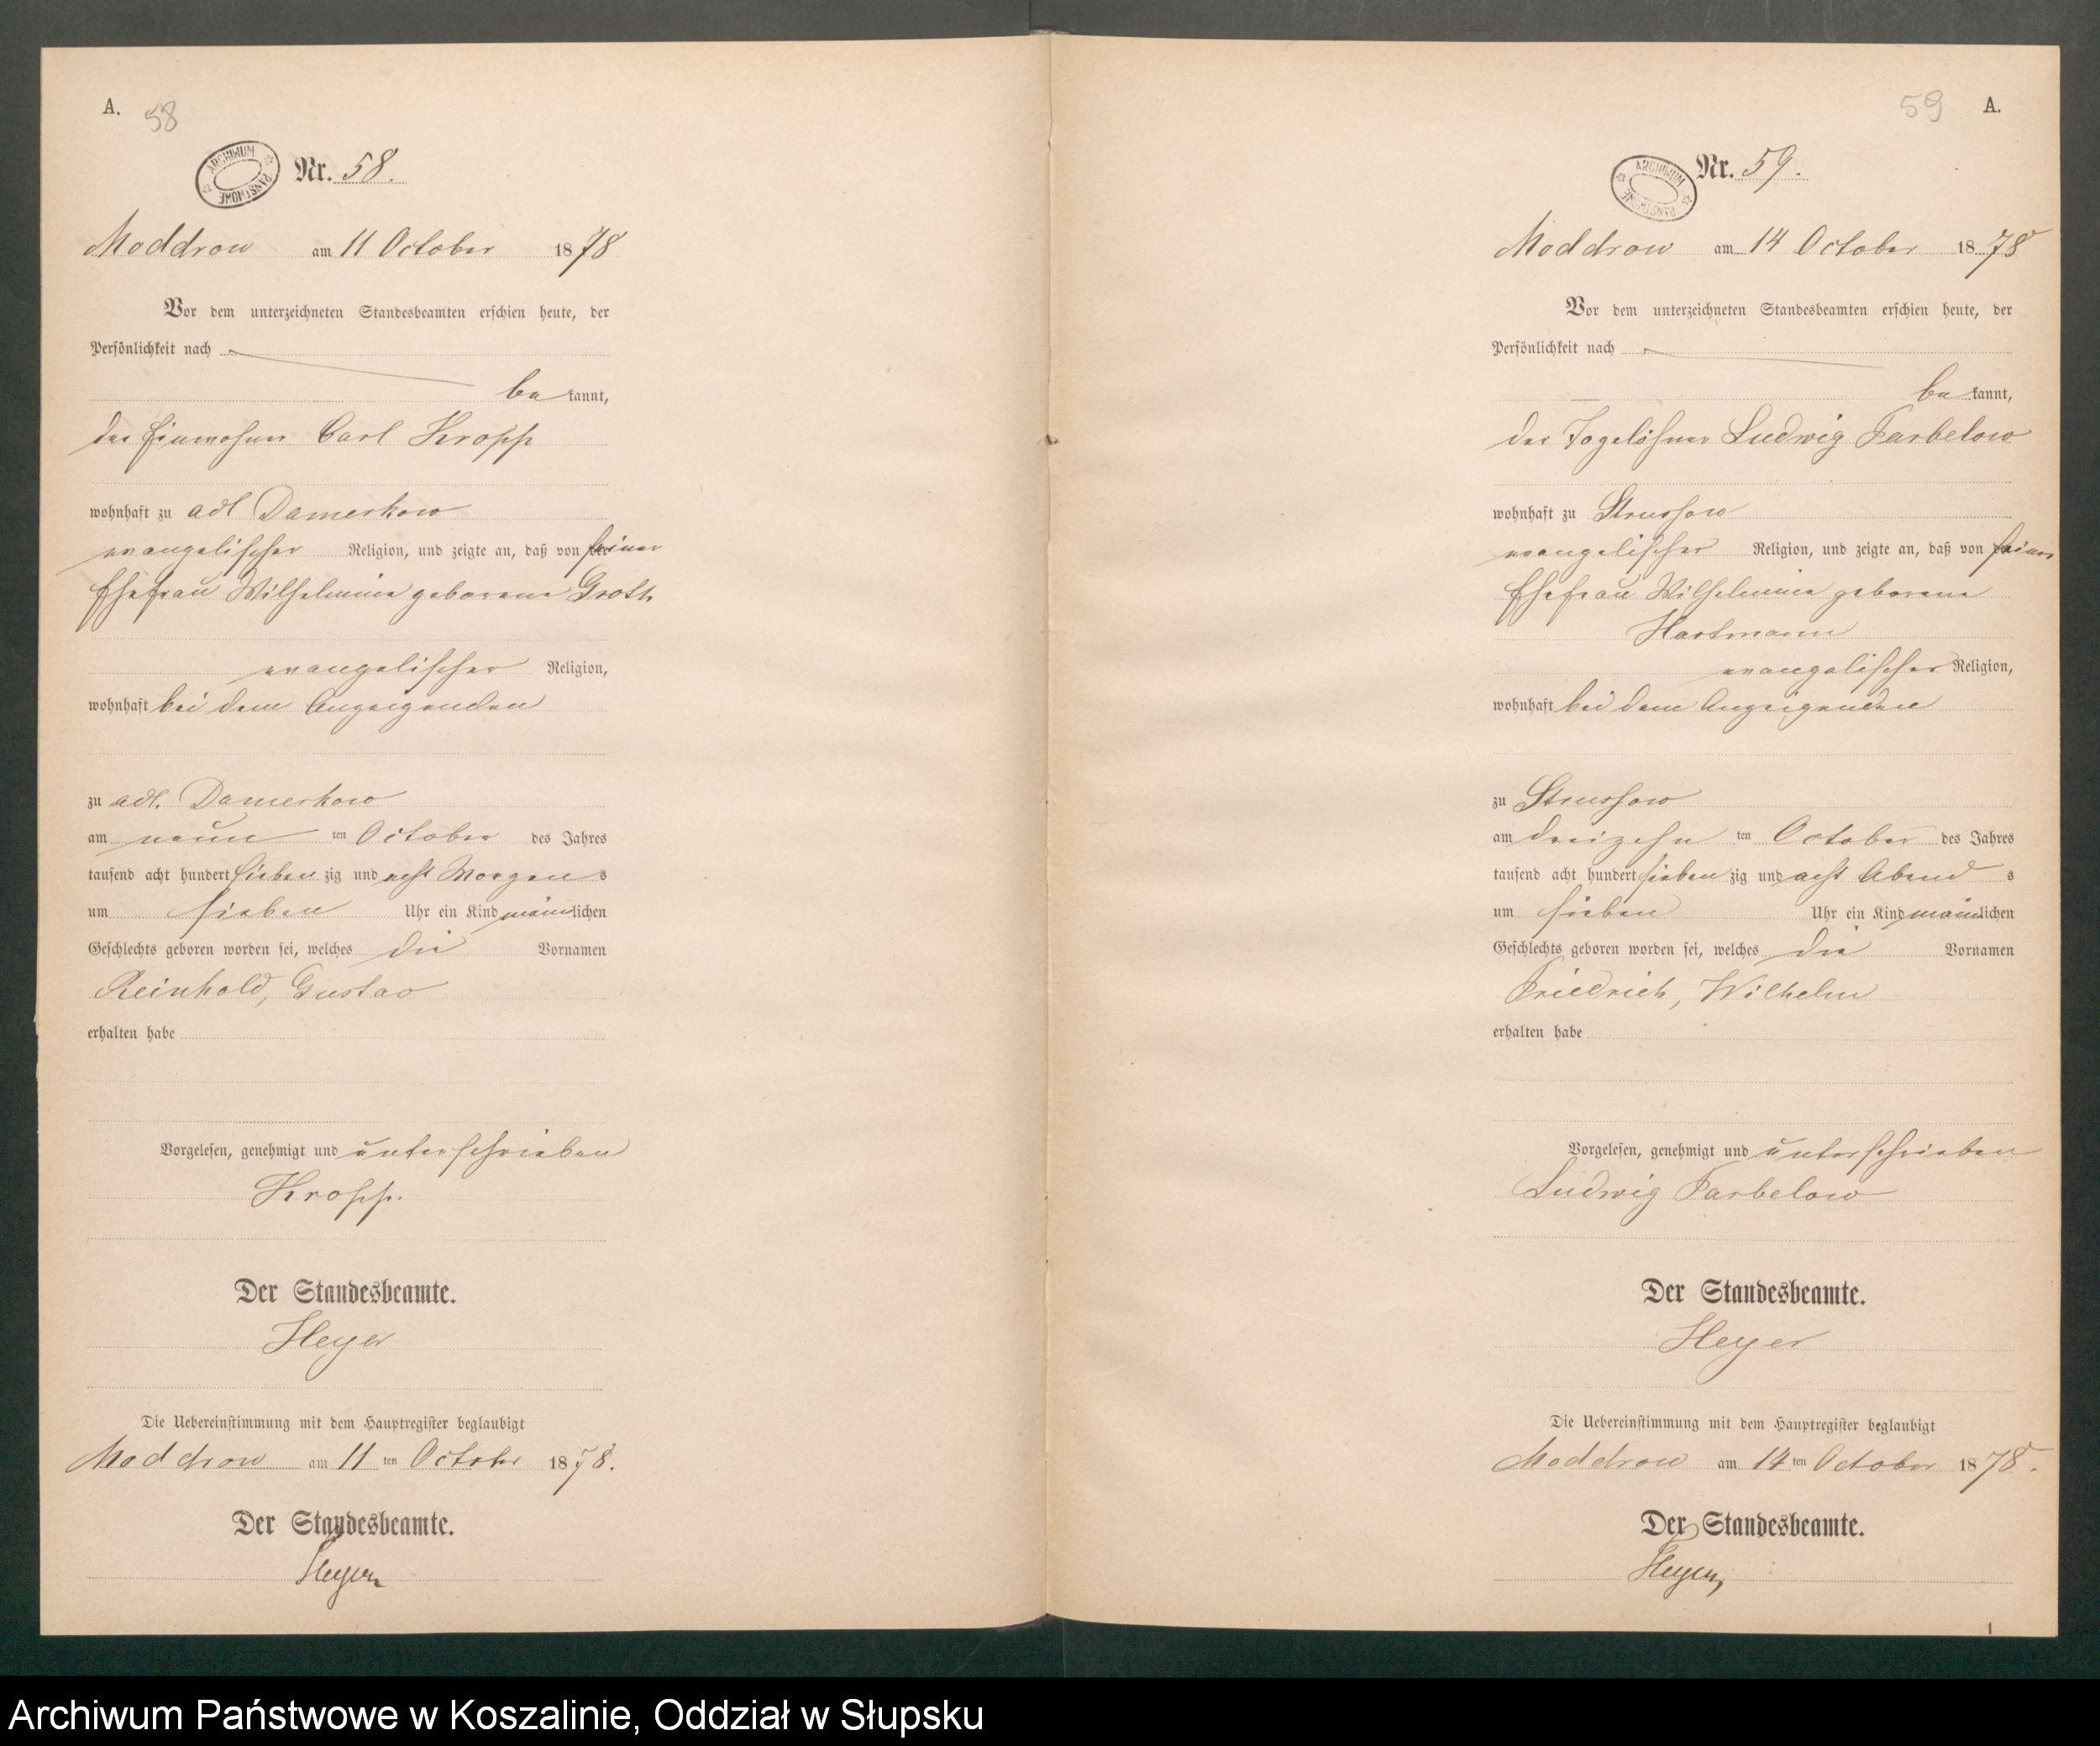 A. 58
ARCHIWUM PAŃSTWOWE
Nr. 58.
Moddrow am 11 October 1878
Vor dem unterzeichneten Standesbeamten erschien heute, der
Persönlichkeit nach
bekannt,
der Einwohner Carl Kropp
wohnhaft zu adl Damerkow
evangelischer Religion, und zeigte an, daß von der seiner
Ehefrau Wilhelmine geborene Groth
evangelischer Religion,
wohnhaft bei dem Anzeigenden
zu adl. Damerkow
am neun ten October des Jahres
tausend acht hundert sieben zig und acht Morgens
um sieben Uhr ein Kind männlichen
Geschlechts geboren worden sei, welches die Vornamen
Reinhold, Gustav
erhalten habe
Vorgelesen, genehmigt und unterschrieben
Kropp.
Der Standesbeamte.
Heyer
Die Uebereinstimmung mit dem Hauptregister beglaubigt
Moddrow am 11 ten October 1878.
Der Standesbeamte.
Heyer
59 A.
ARCHIWUM PAŃSTWOWE
Nr. 59.
Moddrow am 14 October 1878
Vor dem unterzeichneten Standesbeamten erschien heute, der
Persönlichkeit nach
bekannt,
der Tagelöhner Ludwig Farbelow
wohnhaft zu Strussow
evangelischer Religion, und zeigte an, daß von seiner
Ehefrau Wilhelmine geborene
Hartmann
evangelischer Religion,
wohnhaft bei dem Anzeigenden
zu Strussow
am dreizehn ten October des Jahres
tausend acht hundert sieben zig und acht Abends
um sieben Uhr ein Kind männlichen
Geschlechts geboren worden sei, welches die Vornamen
Friedrich, Wilhelm
erhalten habe
Vorgelesen, genehmigt und unterschrieben
Ludwig Farbelow
Der Standesbeamte.
Heyer
Die Uebereinstimmung mit dem Hauptregister beglaubigt
Moddrow am 14 ten October 1878.
Der Standesbeamte.
Heyer
1
Archiwum Państwowe w Koszalinie, Oddział w Słupsku